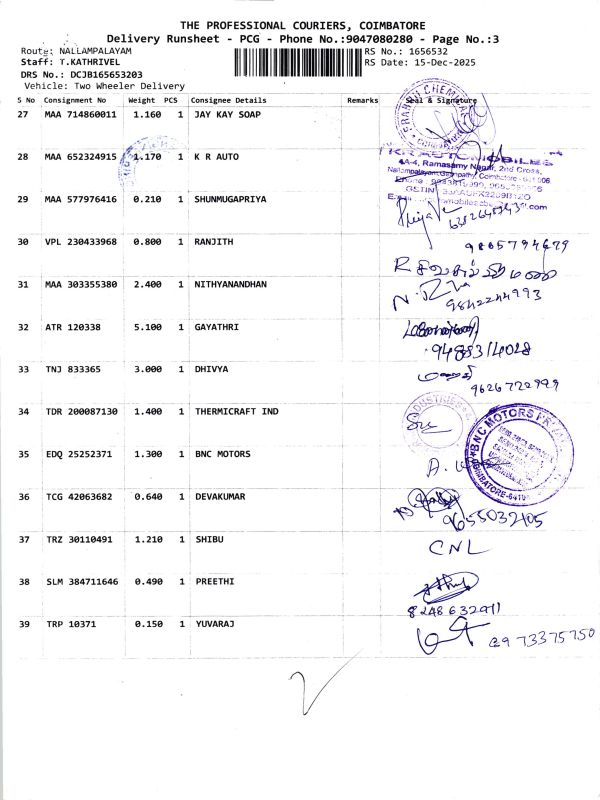 THE PROFESSIONAL COURIERS, COIMBATORE
Delivery Runsheet - PCG - Phone No.:9047080280 - Page No.:3
Route: NALLAMPALAYAM RS No.: 1656532
Staff: T.KATHRIVEL RS Date: 15-Dec-2025
DRS No.: DCJB165653203
Vehicle: Two Wheeler Delivery
S No Consignment No Weight PCS Consignee Details Remarks Seal & Signature
27 MAA 714860011 1.160 1 JAY KAY SOAP
28 MAA 652324915 1.170 1 K R AUTO
K R AUTOMOBILES
4A-4, Ramasamy Nagar, 2nd Cross,
Nallampalayam, Ganapathy, Coimbatore - 641006
29 MAA 577976416 0.210 1 SHUNMUGAPRIYA
30 VPL 230433968 0.800 1 RANJITH
9865794679
31 MAA 303355380 2.400 1 NITHYANANDHAN
9842244993
32 ATR 120338 5.100 1 GAYATHRI
9488314028
33 TNJ 833365 3.000 1 DHIVYA
9626722999
34 TDR 200087130 1.400 1 THERMICRAFT IND
35 EDQ 25252371 1.300 1 BNC MOTORS
BNC MOTORS
36 TCG 42063682 0.640 1 DEVAKUMAR
9655032105
37 TRZ 30110491 1.210 1 SHIBU
CNL
38 SLM 384711646 0.490 1 PREETHI
8248632911
39 TRP 10371 0.150 1 YUVARAJ
8973375750